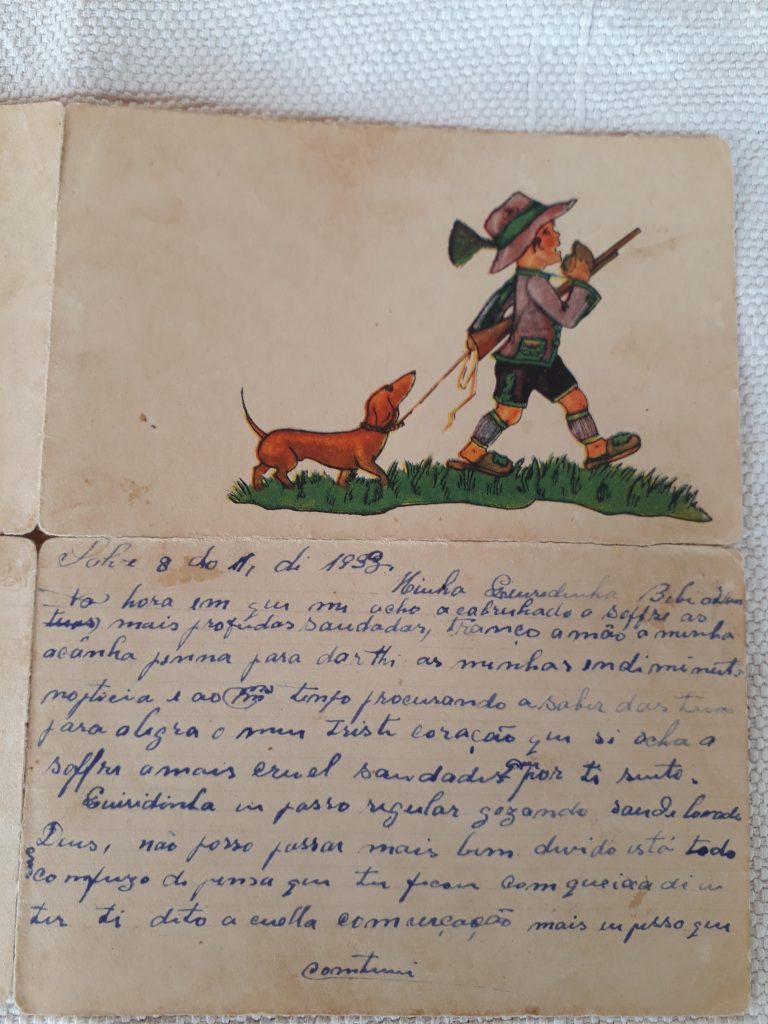 8 do 11, di 1933.
Minha Euridinha
hora em que mi acho acabrunhado a soffre as
mais profudas saudadas, tranço a mão a minha
acânha penna para darthi as minhas
nopticia e ao tempo procurando a saber das tuas
para alegra o meu triste coração qui si acha a
soffre a mais cruel saudades qui por ti sinto.
Euiridinha eu passo regular gozando saude louvado
Deus, não posso passar mais bem divido está todo
comfuzo di pensa qui tu ficou com queixa di eu
ter ti dito a cuella comverçação mais eu pesso que
comtinui